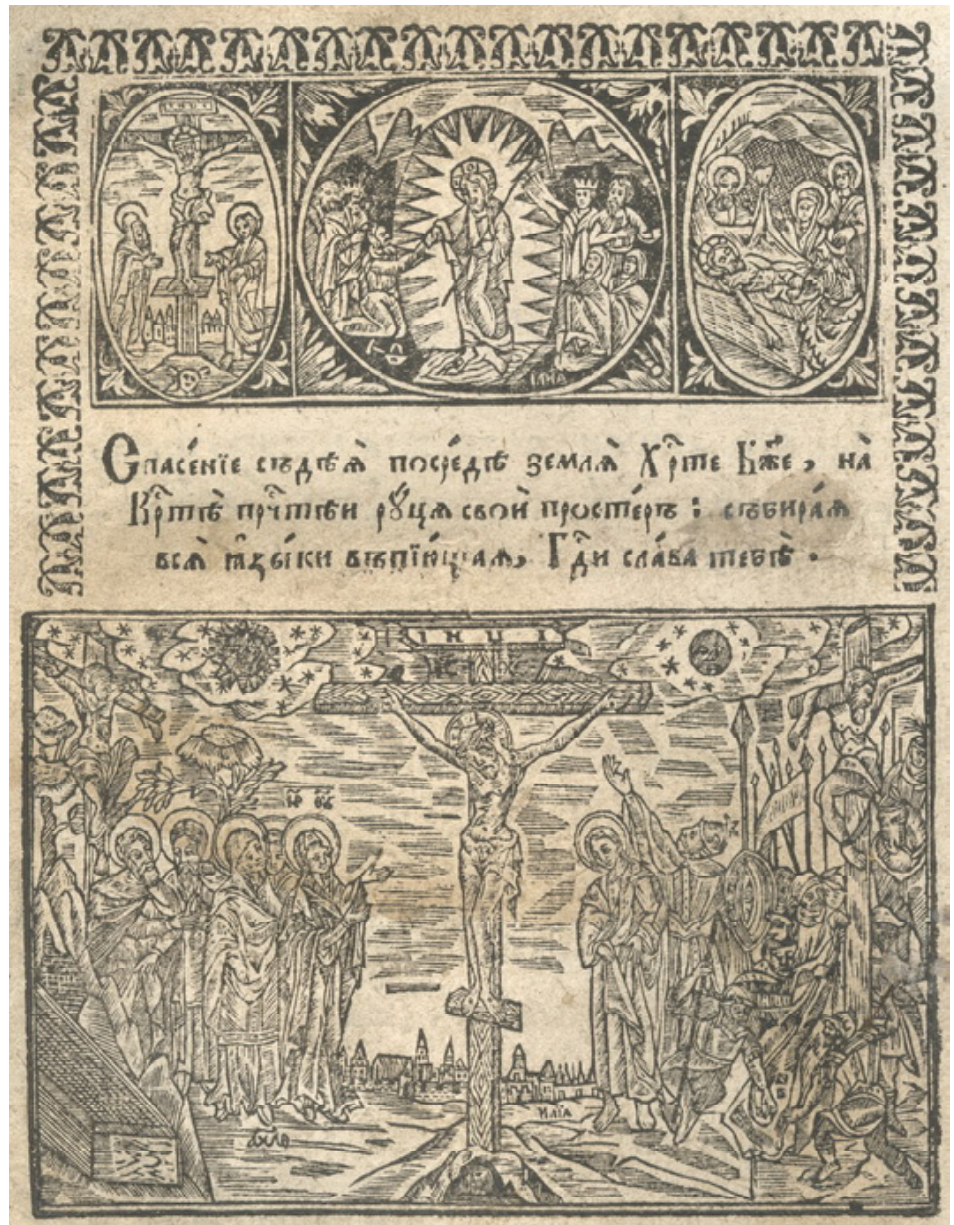 І Н Ц І
ИЛІА
Спасе́нїе съдѣ́ѧ̀ посре́дѣ землѧ̀ Хр҇те Бж҃е, на̀
Кр҇тѣ̀ пр҇чтѣи рꙋ́цѧ своѝ просте́ръ : събира́ѧ
всѧ̀ ѩзы́ки въпїю́щаѧ, Гд҇и сла́ва тебѣ̀ .
І Н Ц І
ИЛІА